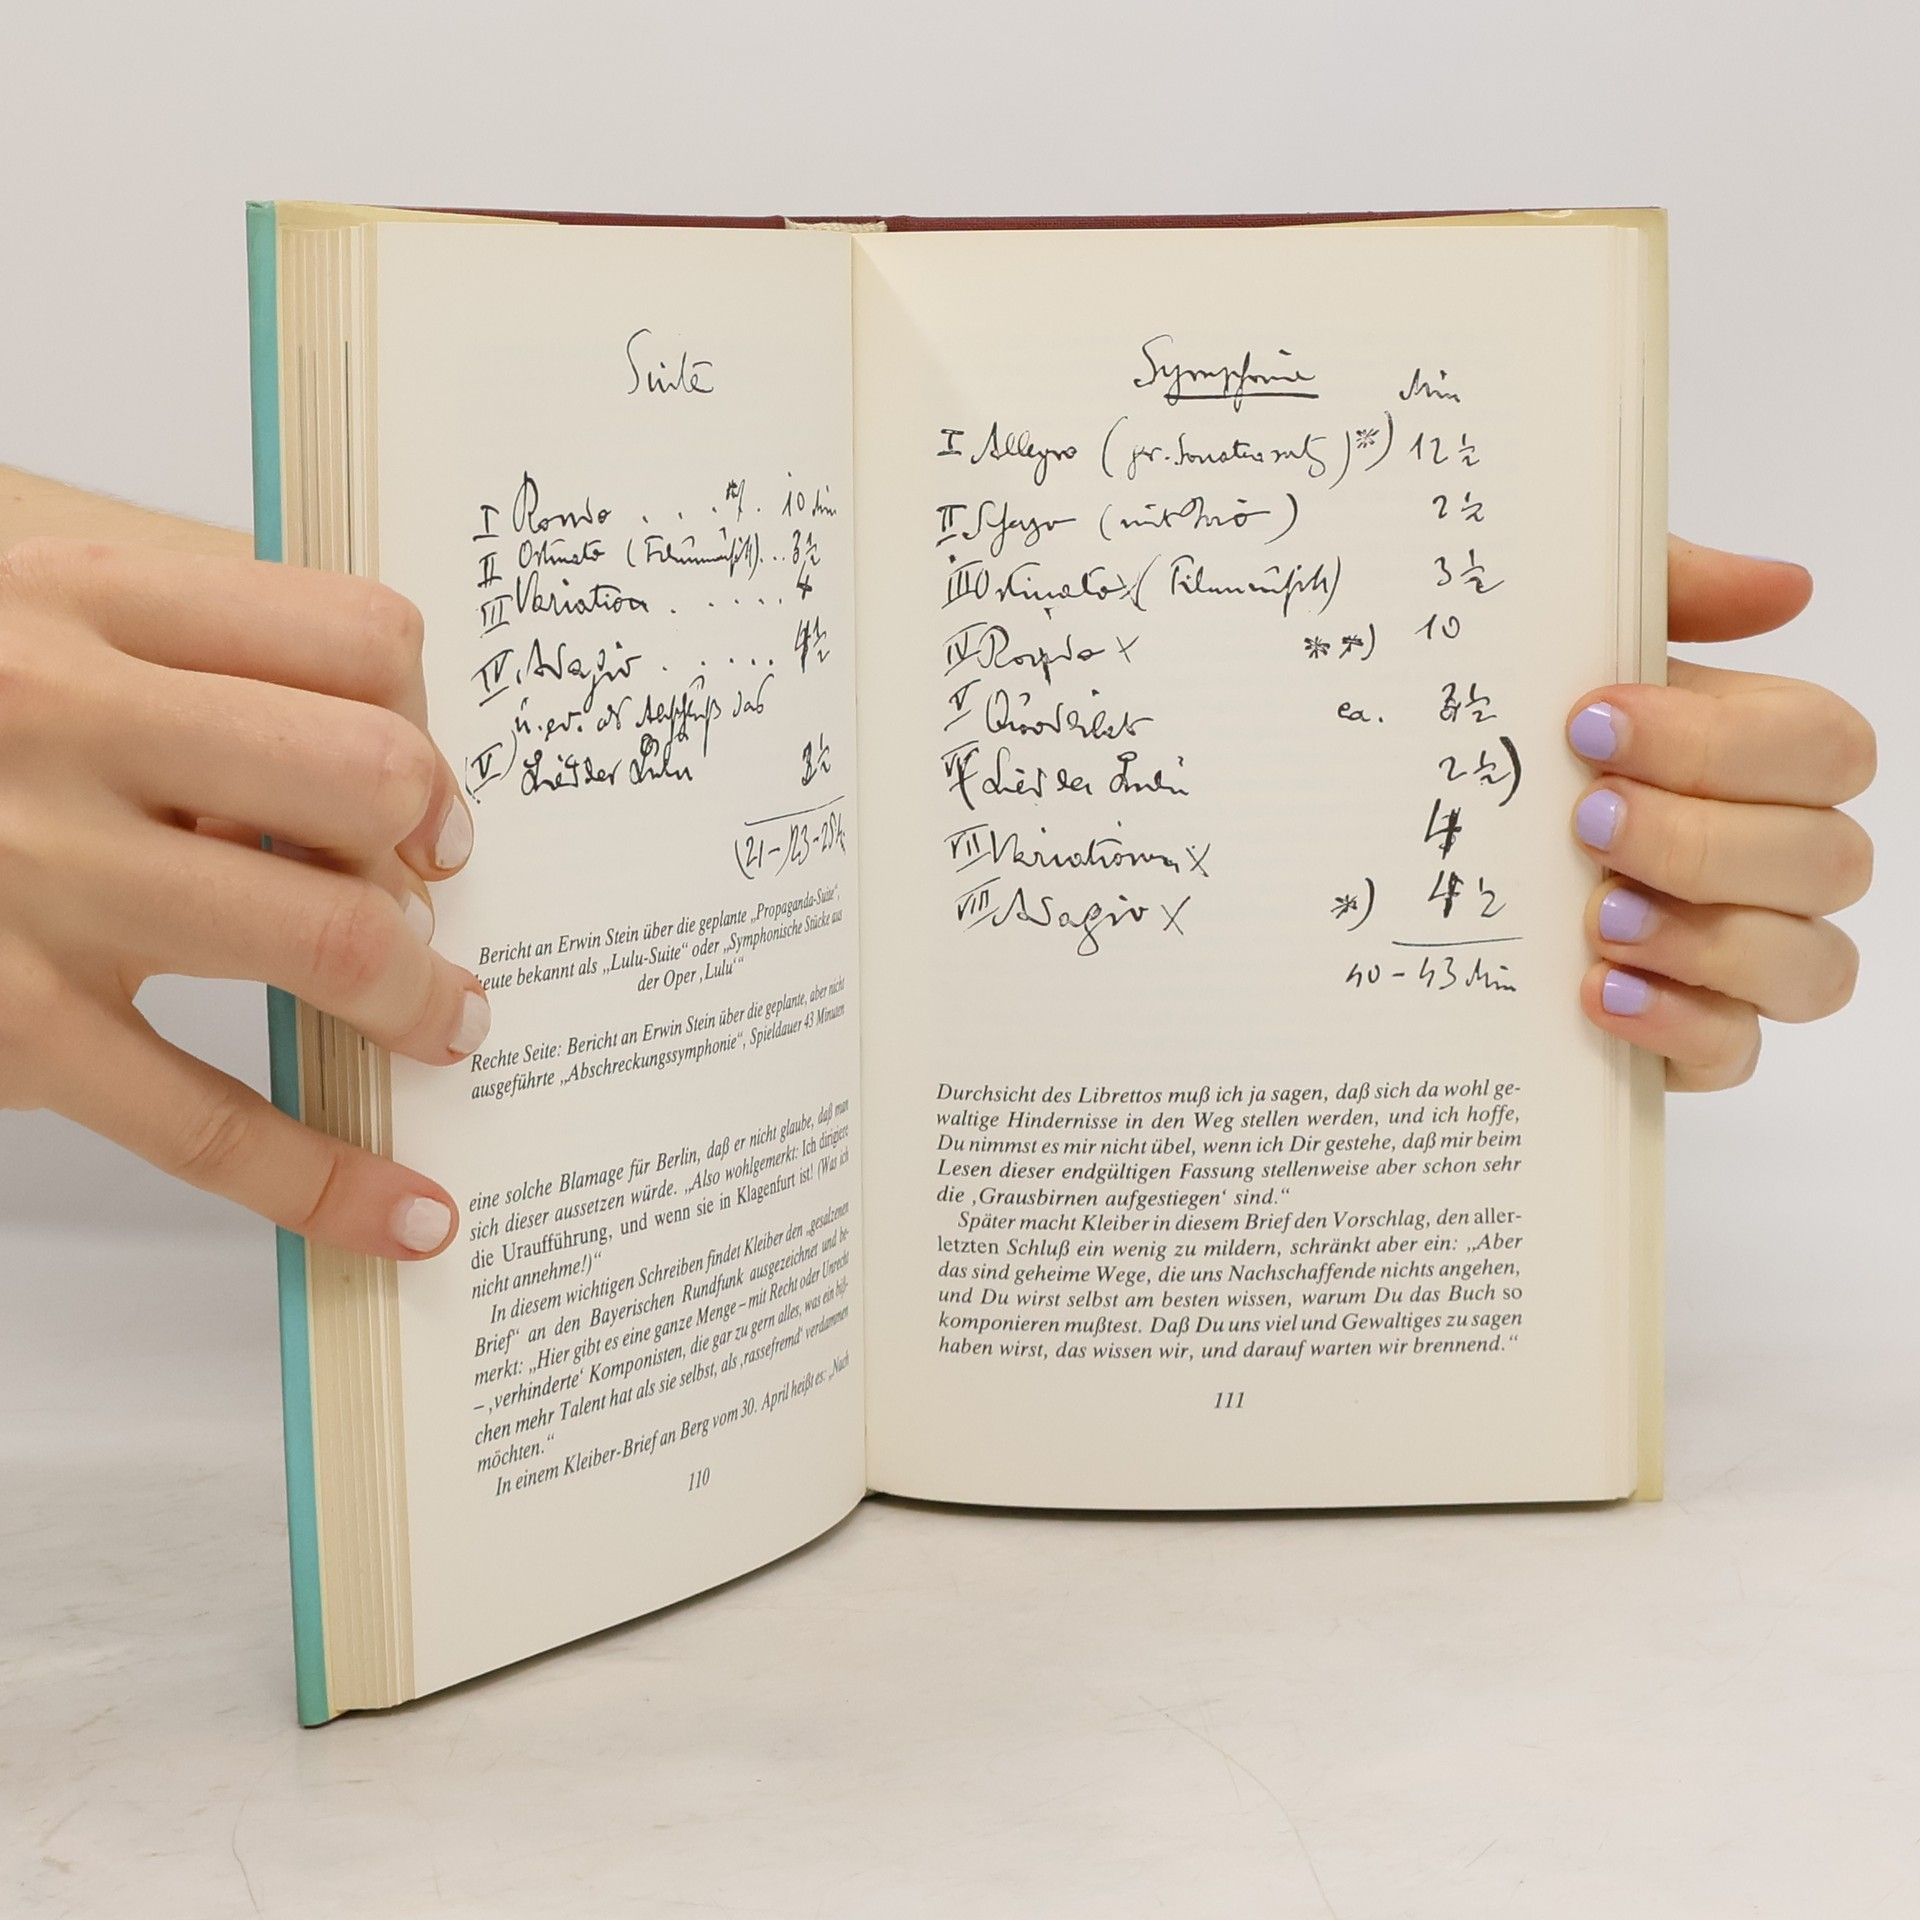 Suite
I Rondo . . . *) . 10 Min
II Ostinato (Filmmusik) . . 3 1/2
III Variation . . . . . 4
IV Adagio . . . . . 4 1/2
u. ev. als Abschluß das
(V) Lied der Lulu 2 1/2
(21-)23-25 1/2
Bericht an Erwin Stein über die geplante „Propaganda-Suite“,
heute bekannt als „Lulu-Suite“ oder „Symphonische Stücke aus
der Oper ‚Lulu‘“
Rechte Seite: Bericht an Erwin Stein über die geplante, aber nicht
ausgeführte „Abschreckungssymphonie“, Spieldauer 43 Minuten
eine solche Blamage für Berlin, daß er nicht glaube, daß man
sich dieser aussetzen würde. „Also wohlgemerkt: Ich dirigiere
die Uraufführung, und wenn sie in Klagenfurt ist! (Was ich
nicht annehme!)“
In diesem wichtigen Schreiben findet Kleiber den „gesalzenen
Brief“ an den Bayerischen Rundfunk ausgezeichnet und be-
merkt: „Hier gibt es eine ganze Menge – mit Recht oder Unrecht
– ‚verhinderte‘ Komponisten, die gar zu gern alles, was ein biß-
chen mehr Talent hat als sie selbst, als ‚rassefremd‘ verdammen
möchten.“
In einem Kleiber-Brief an Berg vom 30. April heißt es: „Nach
110
Symphonie Min
I Allegro (gr. Sonatensatz)*) 12 1/2
II Scherzo (mit Trio) 2 1/2
III Ostinato x (Filmmusik) 3 1/2
IV Rondo x **) 10
V Quodlibet ca. 3 1/2
VI (Lied der Lulu 2 1/2)
VII Variationen x 4
VIII Adagio x *) 4 1/2
40 - 43 Min
Durchsicht des Librettos muß ich ja sagen, daß sich da wohl ge-
waltige Hindernisse in den Weg stellen werden, und ich hoffe,
Du nimmst es mir nicht übel, wenn ich Dir gestehe, daß mir beim
Lesen dieser endgültigen Fassung stellenweise aber schon sehr
die ‚Grausbirnen aufgestiegen‘ sind.“
Später macht Kleiber in diesem Brief den Vorschlag, den aller-
letzten Schluß ein wenig zu mildern, schränkt aber ein: „Aber
das sind geheime Wege, die uns Nachschaffende nichts angehen,
und Du wirst selbst am besten wissen, warum Du das Buch so
komponieren mußtest. Daß Du uns viel und Gewaltiges zu sagen
haben wirst, das wissen wir, und darauf warten wir brennend.“
111